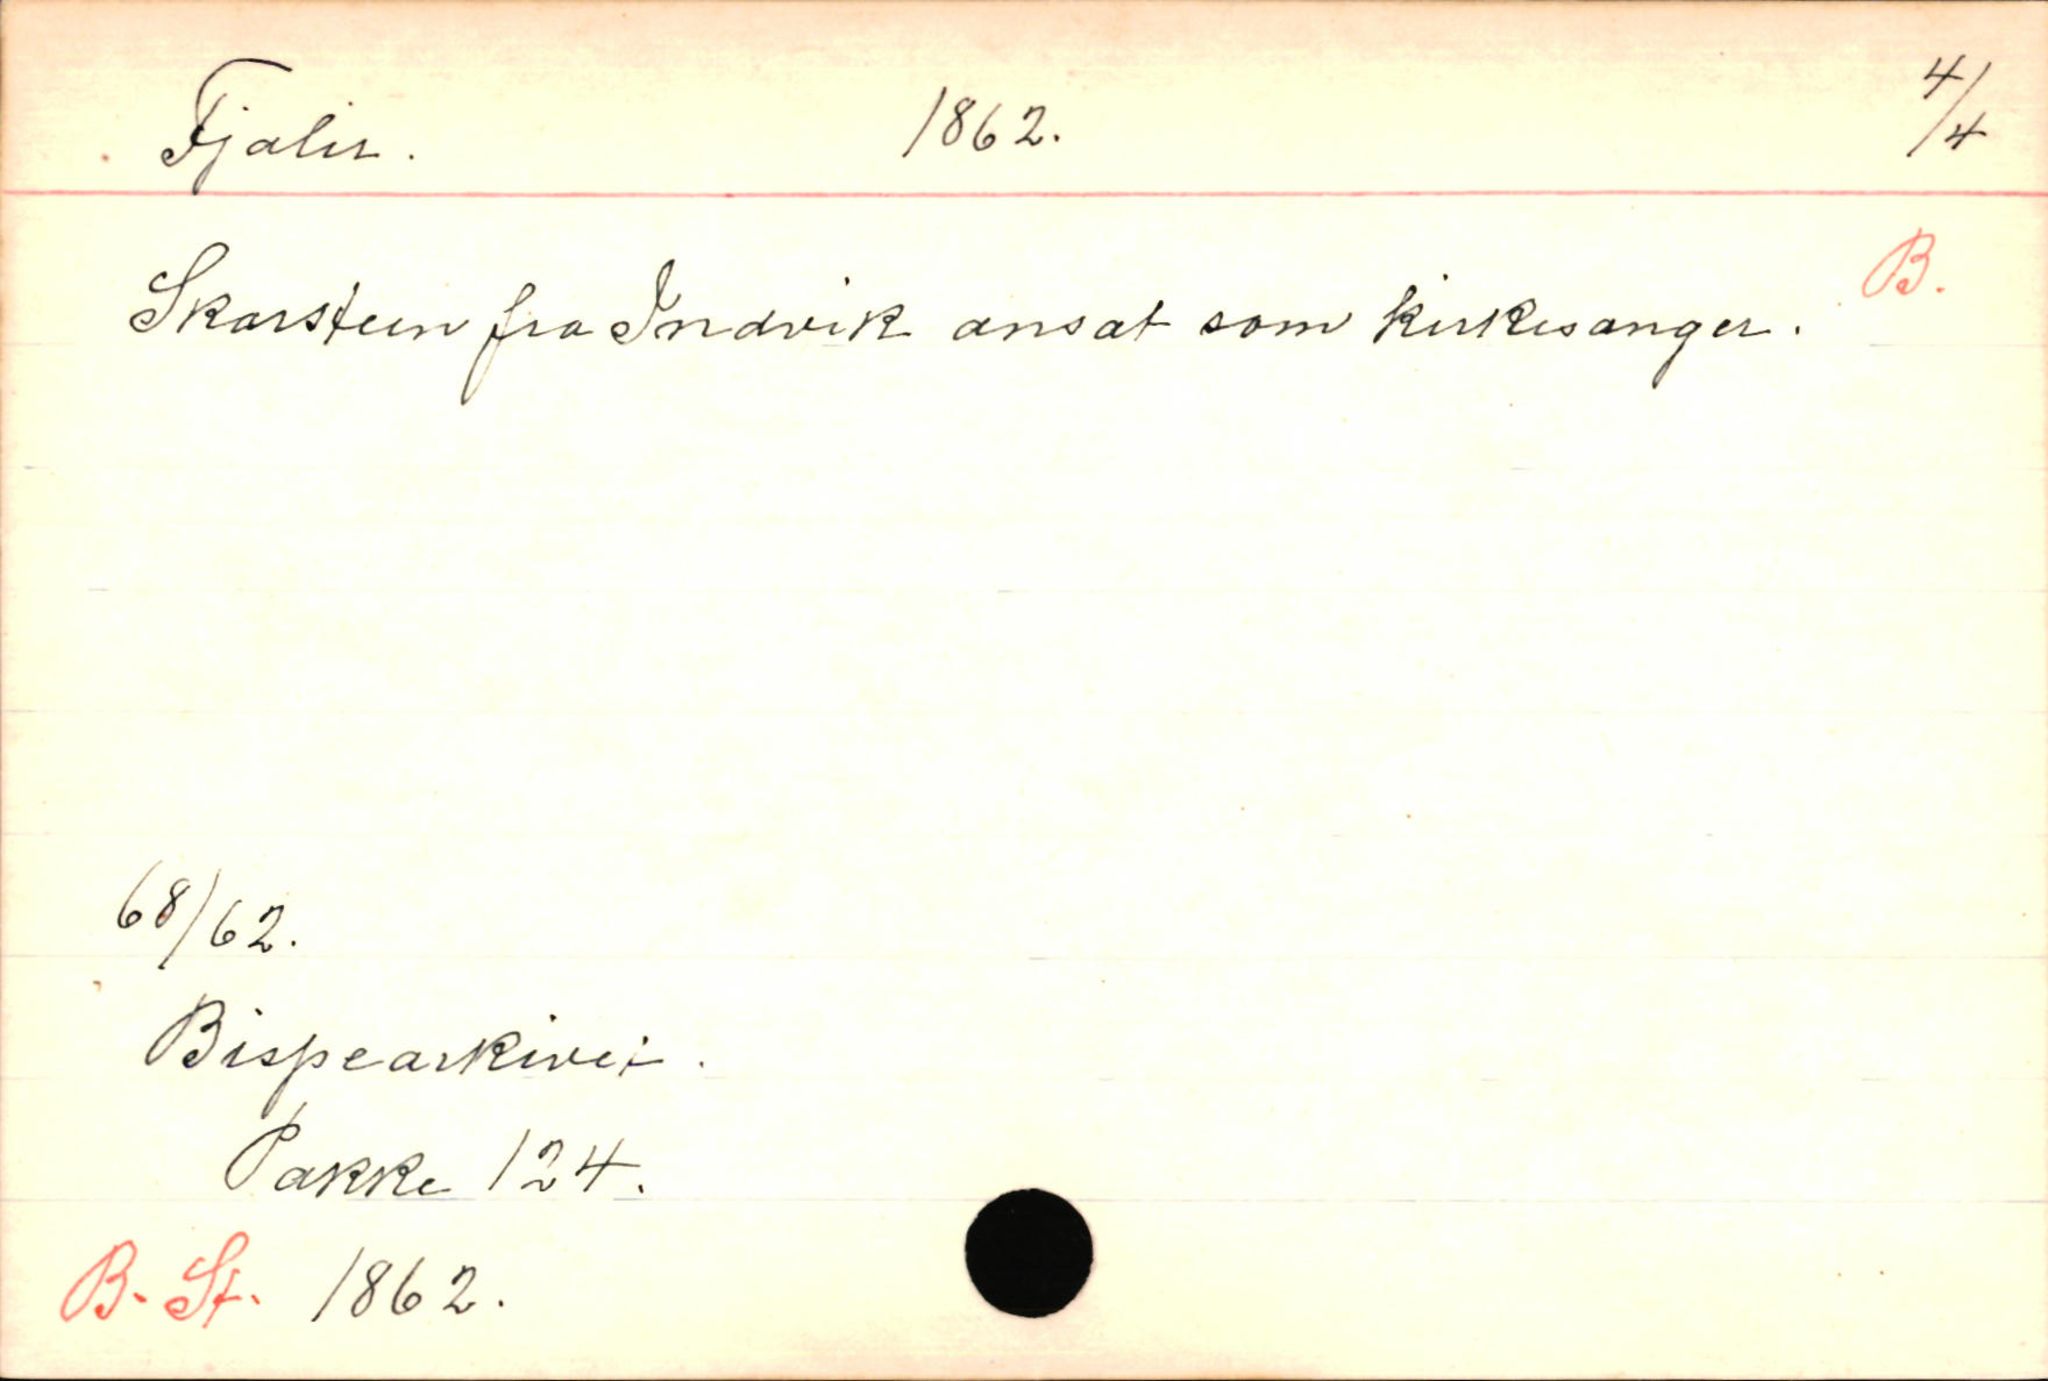 Fjaler. 1862. 4/4
B.
Skarsteen fra Indvik ansat som kirkesanger.
68/62.
Bispearkivet.
Pakke 124.
B. St. 1862.